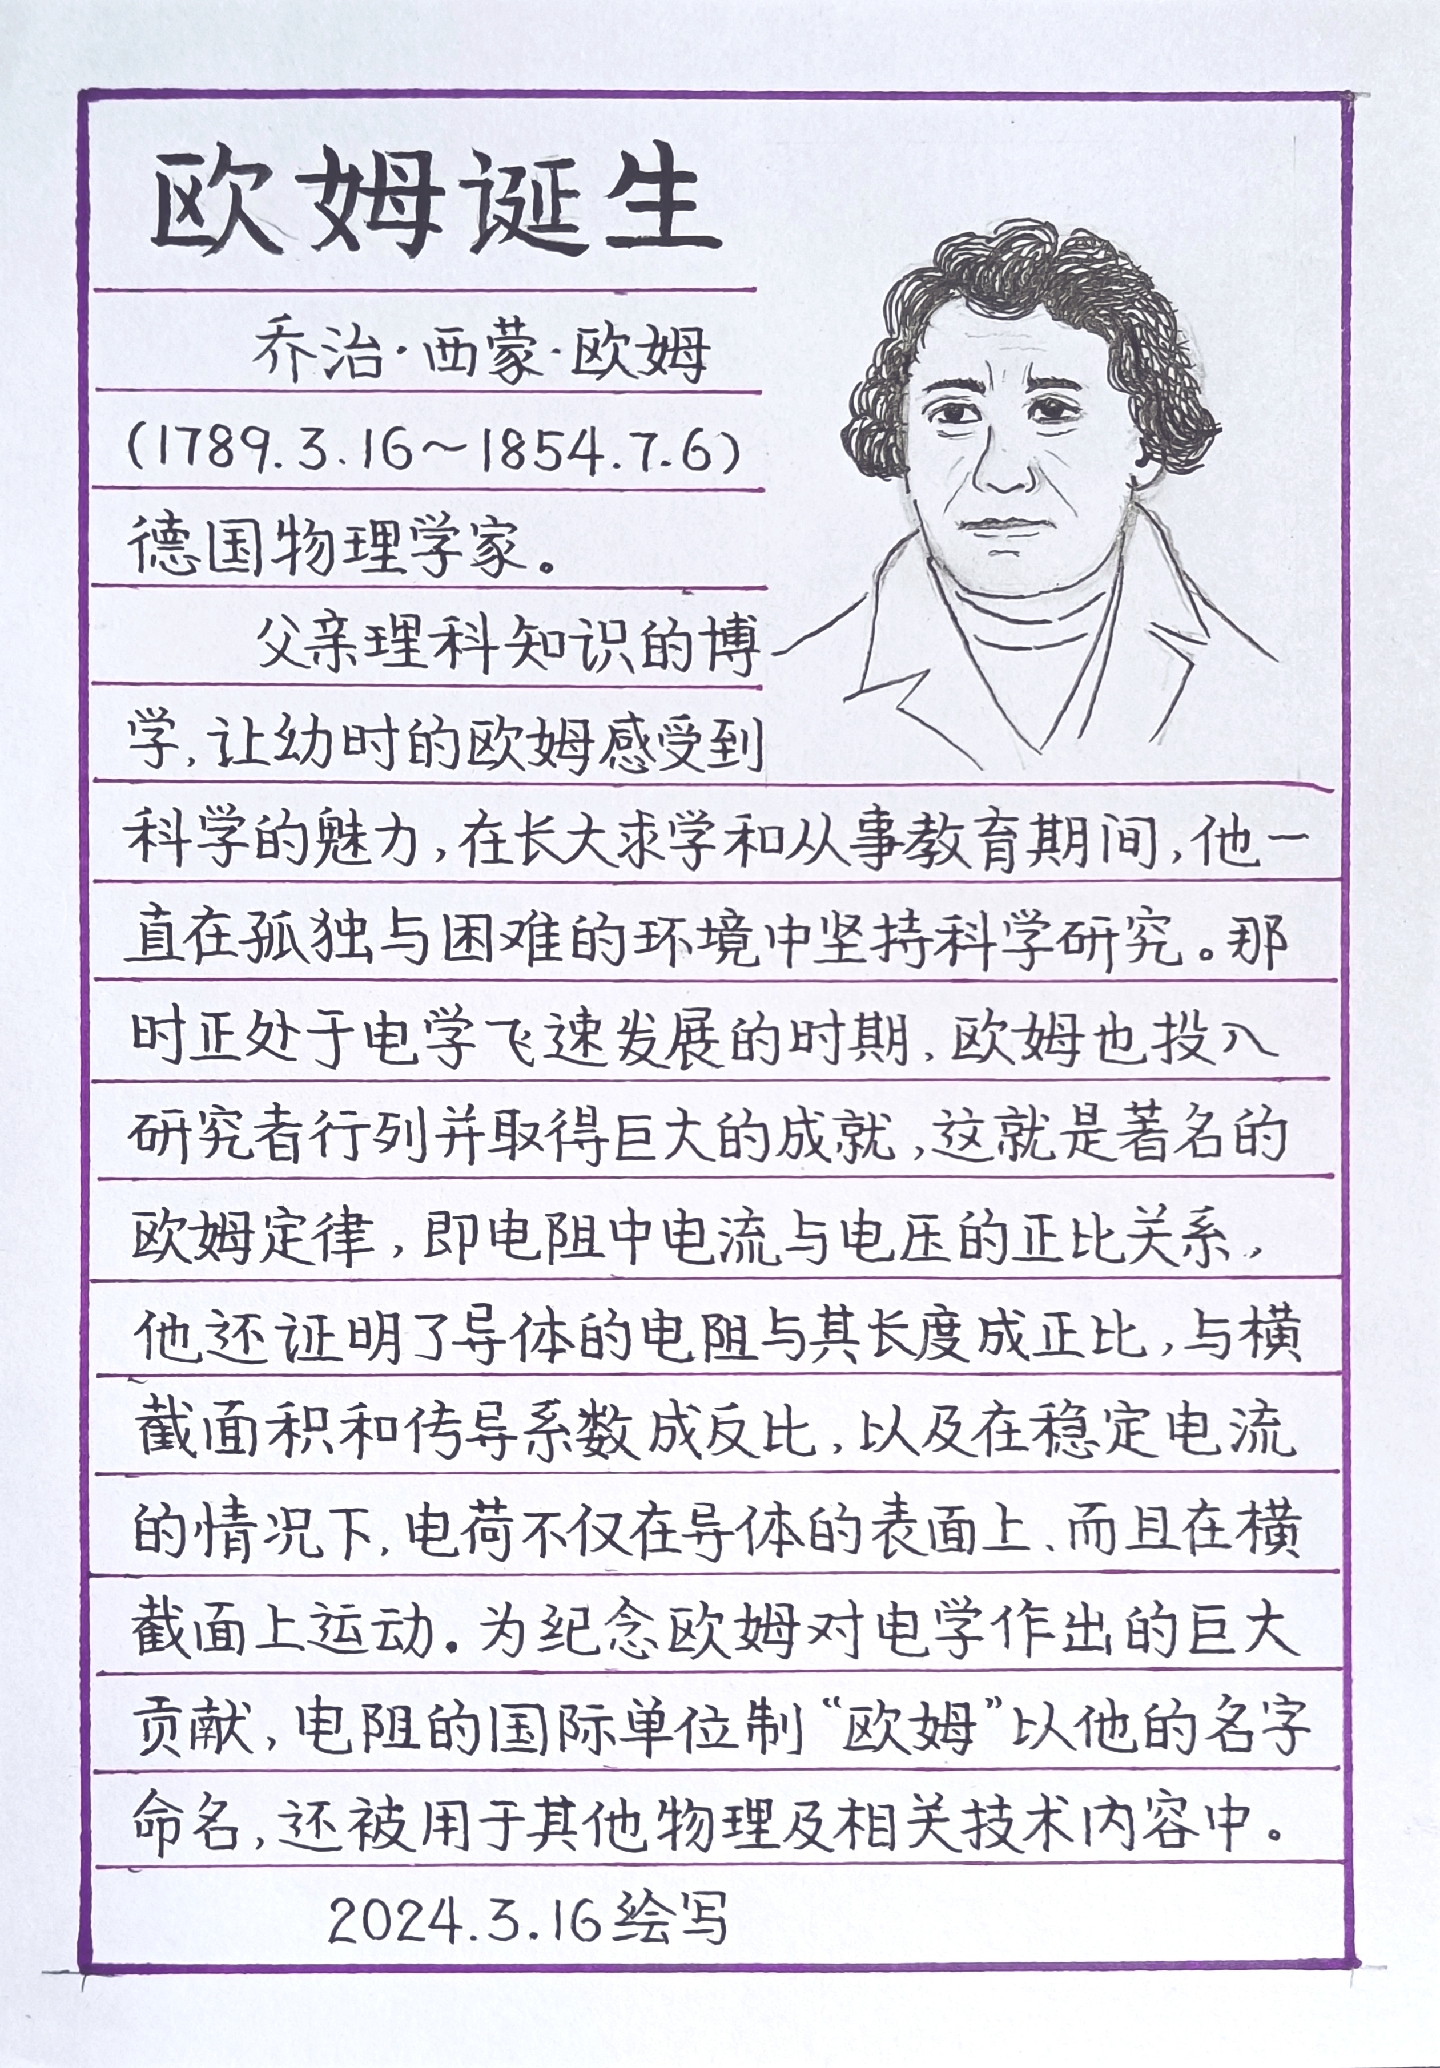 欧姆诞生
乔治·西蒙·欧姆
(1789.3.16～1854.7.6)
德国物理学家。
父亲理科知识的博
学,让幼时的欧姆感受到
科学的魅力,在长大求学和从事教育期间,他一
直在孤独与困难的环境中坚持科学研究。那
时正处于电学飞速发展的时期,欧姆也投入
研究者行列并取得巨大的成就,这就是著名的
欧姆定律,即电阻中电流与电压的正比关系,
他还证明了导体的电阻与其长度成正比,与横
截面积和传导系数成反比,以及在稳定电流
的情况下,电荷不仅在导体的表面上、而且在横
截面上运动。为纪念欧姆对电学作出的巨大
贡献,电阻的国际单位制“欧姆”以他的名字
命名,还被用于其他物理及相关技术内容中。
2024.3.16绘写